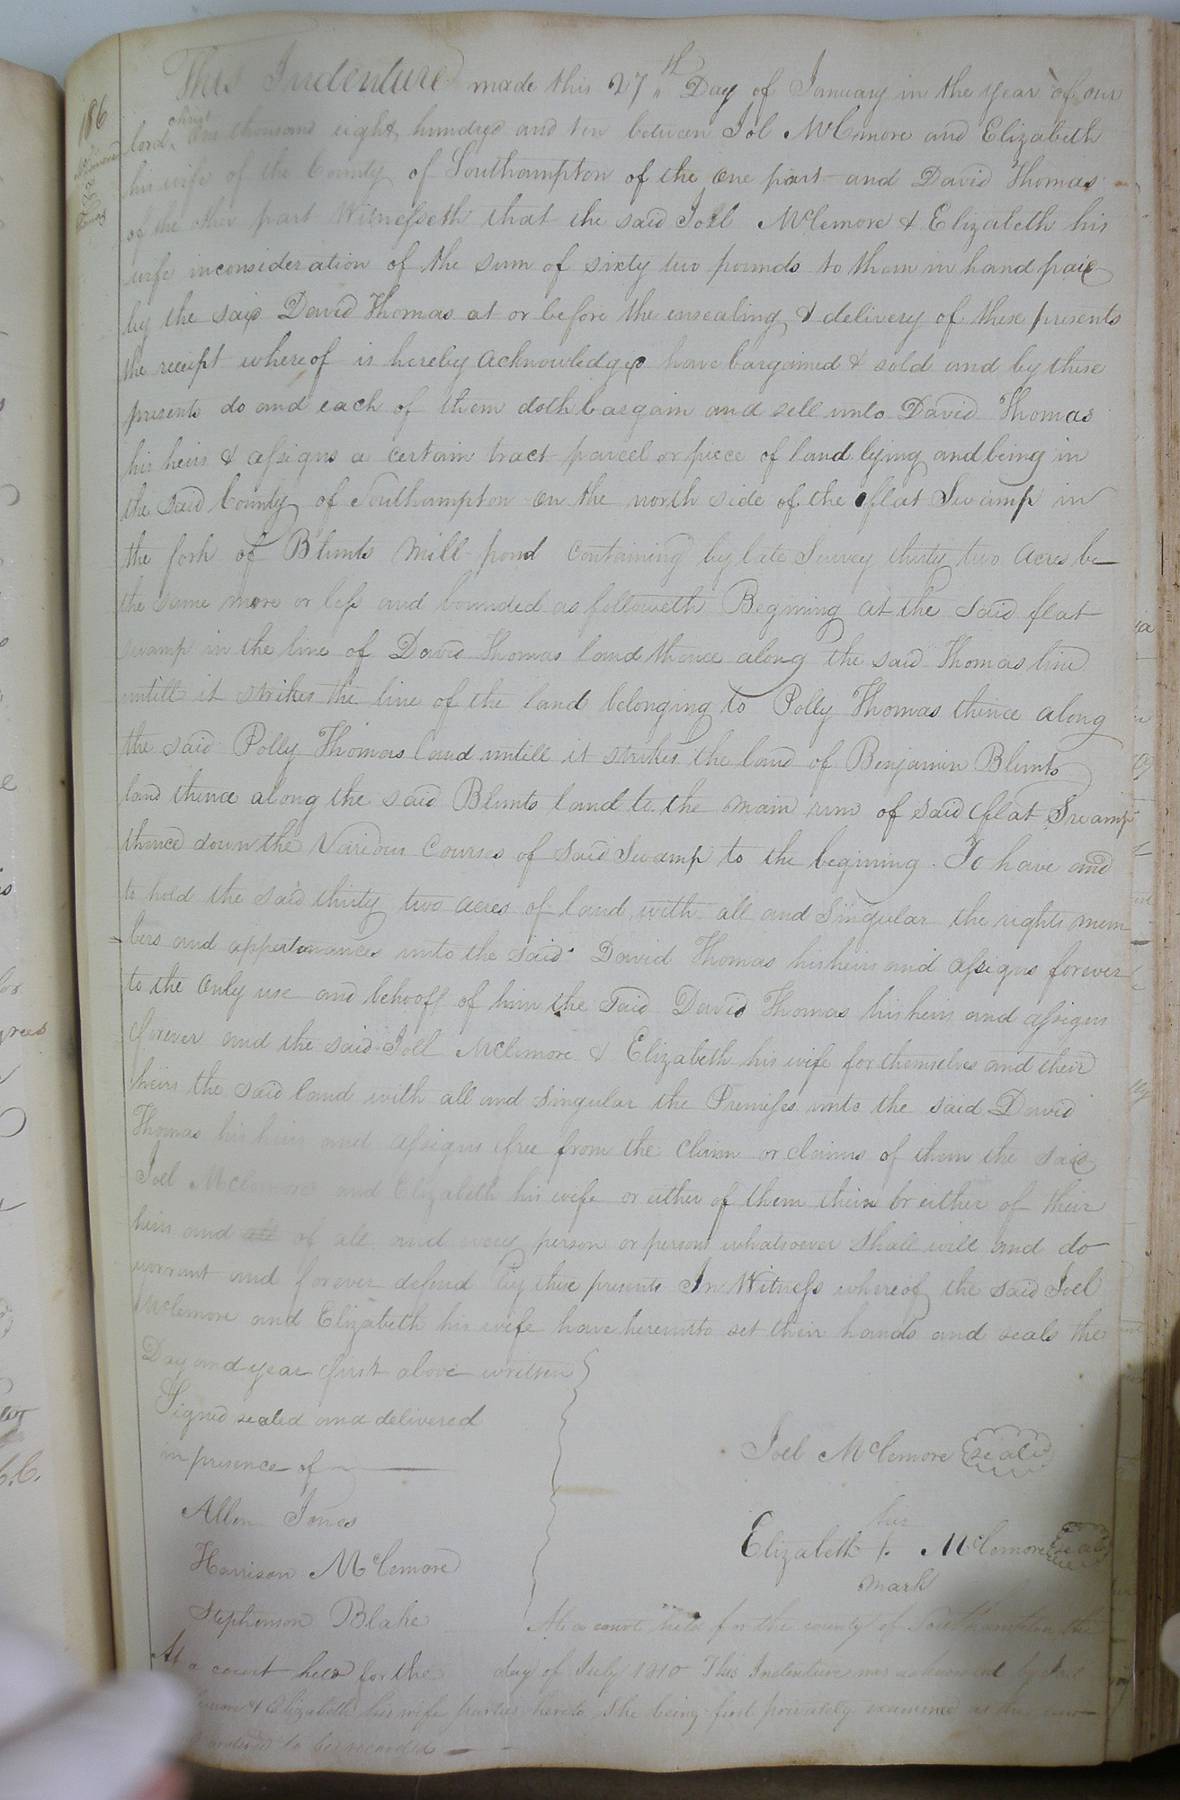 186
McLemore
to
Thomas
This Indenture made this 27th Day of January in the year of our
lord christ one thousand eight hundred and ten between Jol McLmore and Elizabeth
his wife of the County of Southampton of the one part and David Thomas
of the other part Witnesseth that the said Joel McLemore & Elizabeth his
wife inconsideration of the sum of sixty two pounds to them in hand paid
by the said David Thomas at or before the ensealing & delivery of these presents
the receipt whereof is hereby acknowledged have bargained & sold and by these
presents do and each of them doth bargain and sell unto David Thomas
his heirs & assigns a certain tract parcel or piece of land lying and being in
the said County of Southampton on the north side of the flat Swamp in
the fork of Blunts Mill pond containing by late Survey thirty two acres be
the same more or less and bounded as followeth Begining at the said flat
swamp in the line of David Thomas land thence along the said Thomas line
untill it strikes the line of the land belonging to Polly Thomas thence along
the said Polly Thomas land untill it strikes the land of Benjamin Blunts
land thence along the said Blunts land to the main run of said flat Swamp
thence down the Various Courses of said Swamp to the begining. To have and
to hold the said thirty two acres of land with all and Singular the rights mem
=bers and appertenances unto the said David Thomas his heirs and assigns forever
to the only use and behoof of him the said David Thomas his heirs and assigns
forever and the said Joll McLemore & Elizabeth his wife for themselves and their
heirs the said land with all and singular the Premises unto the said David
Thomas his heirs and assigns free from the Claim or claims of them the said
Joel McLemore and Elizabeth his wife or either of them their or either of their
heirs and all of all and every person or persons whatsoever shall will and do
warrant and forever defend by these presents In Witness whereof the said Joel
McLemore and Elizabeth his wife have hereunto set their hands and seals the
Day and year first above written
Signed sealed and delivered
in presence of
Joel McLemore seal
Allen Jones
her
Elizabeth + McLemore seal
mark
Harrison McLemore
Stephenson Blake
At a court held for the county of Southampton the
At a court held for the day of July 1810 This Indenture was by Joel
& Elizabeth his wife parties hereto she being first privately examined as the law
ordered to be recorded